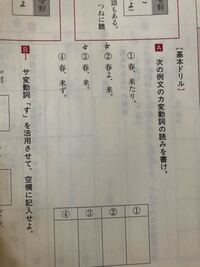 語もある。
つねに読
【基本ドリル】
A 次の例文のカ変動詞の読みを書け。
① 春、来たり。
☆② 春よ、来。
☆③ 春、来。
④ 春、来ず。
①
②
③
④
B Ⅰ サ変動詞「す」を活用させて、空欄に記入せよ。